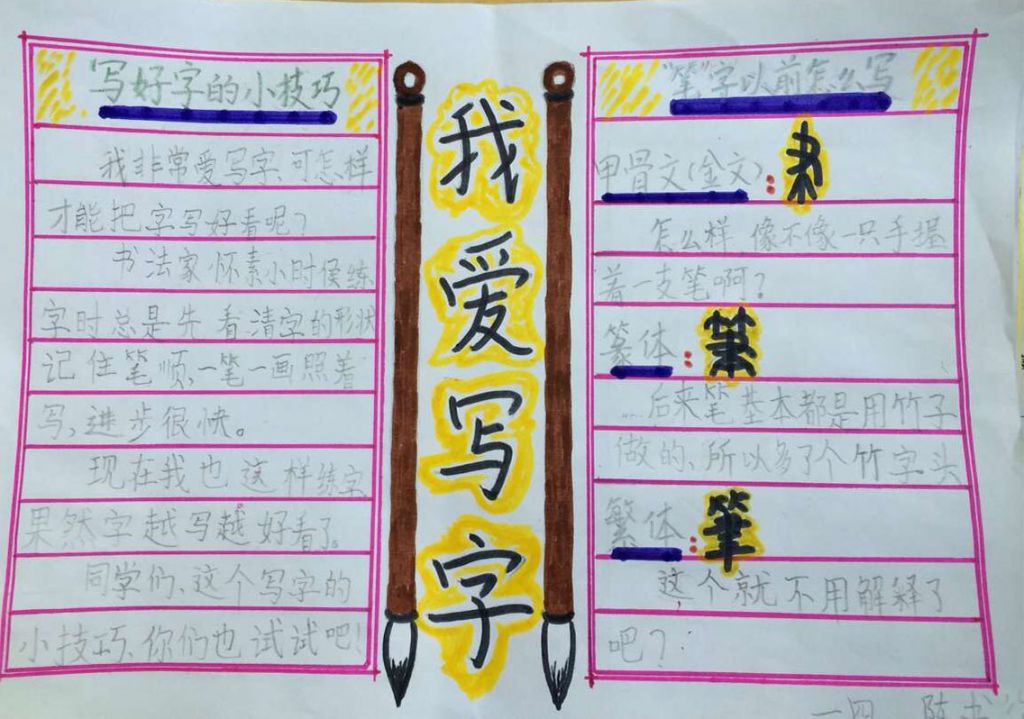 写好字的小技巧
我非常爱写字,可怎样
才能把字写好看呢?
书法家怀素小时侯练
字时总是先看清字的形状
记住笔顺,一笔一画照着
写,进步很快。
现在我也这样练字
果然字越写越好看了。
同学们、这个写字的
小技巧、你们也试试吧!
我爱写字
"笔"字以前怎么写
甲骨文(金文):
怎么样,像不像一只手握
着一支笔啊?
篆体:
后来笔基本都是用竹子
做的、所以多了个竹字头
繁体:筆
这个就不用解释了
吧?
一四 陈书